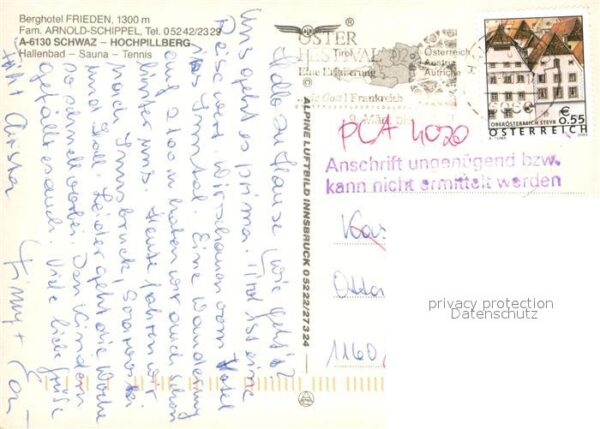 Berghotel FRIEDEN, 1300 m
Fam. ARNOLD-SCHIPPEL, Tel. 05242/2329
A-6130 SCHWAZ – HOCHPILLBERG
Hallenbad – Sauna – Tennis
OSTER
FESTIVAL
Tirol
Österreich
Austria
Autriche
Frankreich
€ 0.55
OBERÖSTERREICH STEYR
ÖSTERREICH
PCA 4020
Anschrift ungenügend bzw.
kann nicht ermittelt werden
© ALPINE LUFTBILD INNSBRUCK 05222/27324
Hallo zu Hause! Wie geht's?
Uns geht es prima. Tirol ist eine
Reise wert. Wir schauen vom Hotel
ins Inntal. Eine Wanderung
auf 2100 m haben wir auch schon
hinter uns. Heute fahren wir
nach Innsbruck,
und Hall. Leider geht die Woche
so schnell vorbei. Den Kindern
gefällt es auch. Viele liebe Grüße
1160
privacy protection
Datenschutz